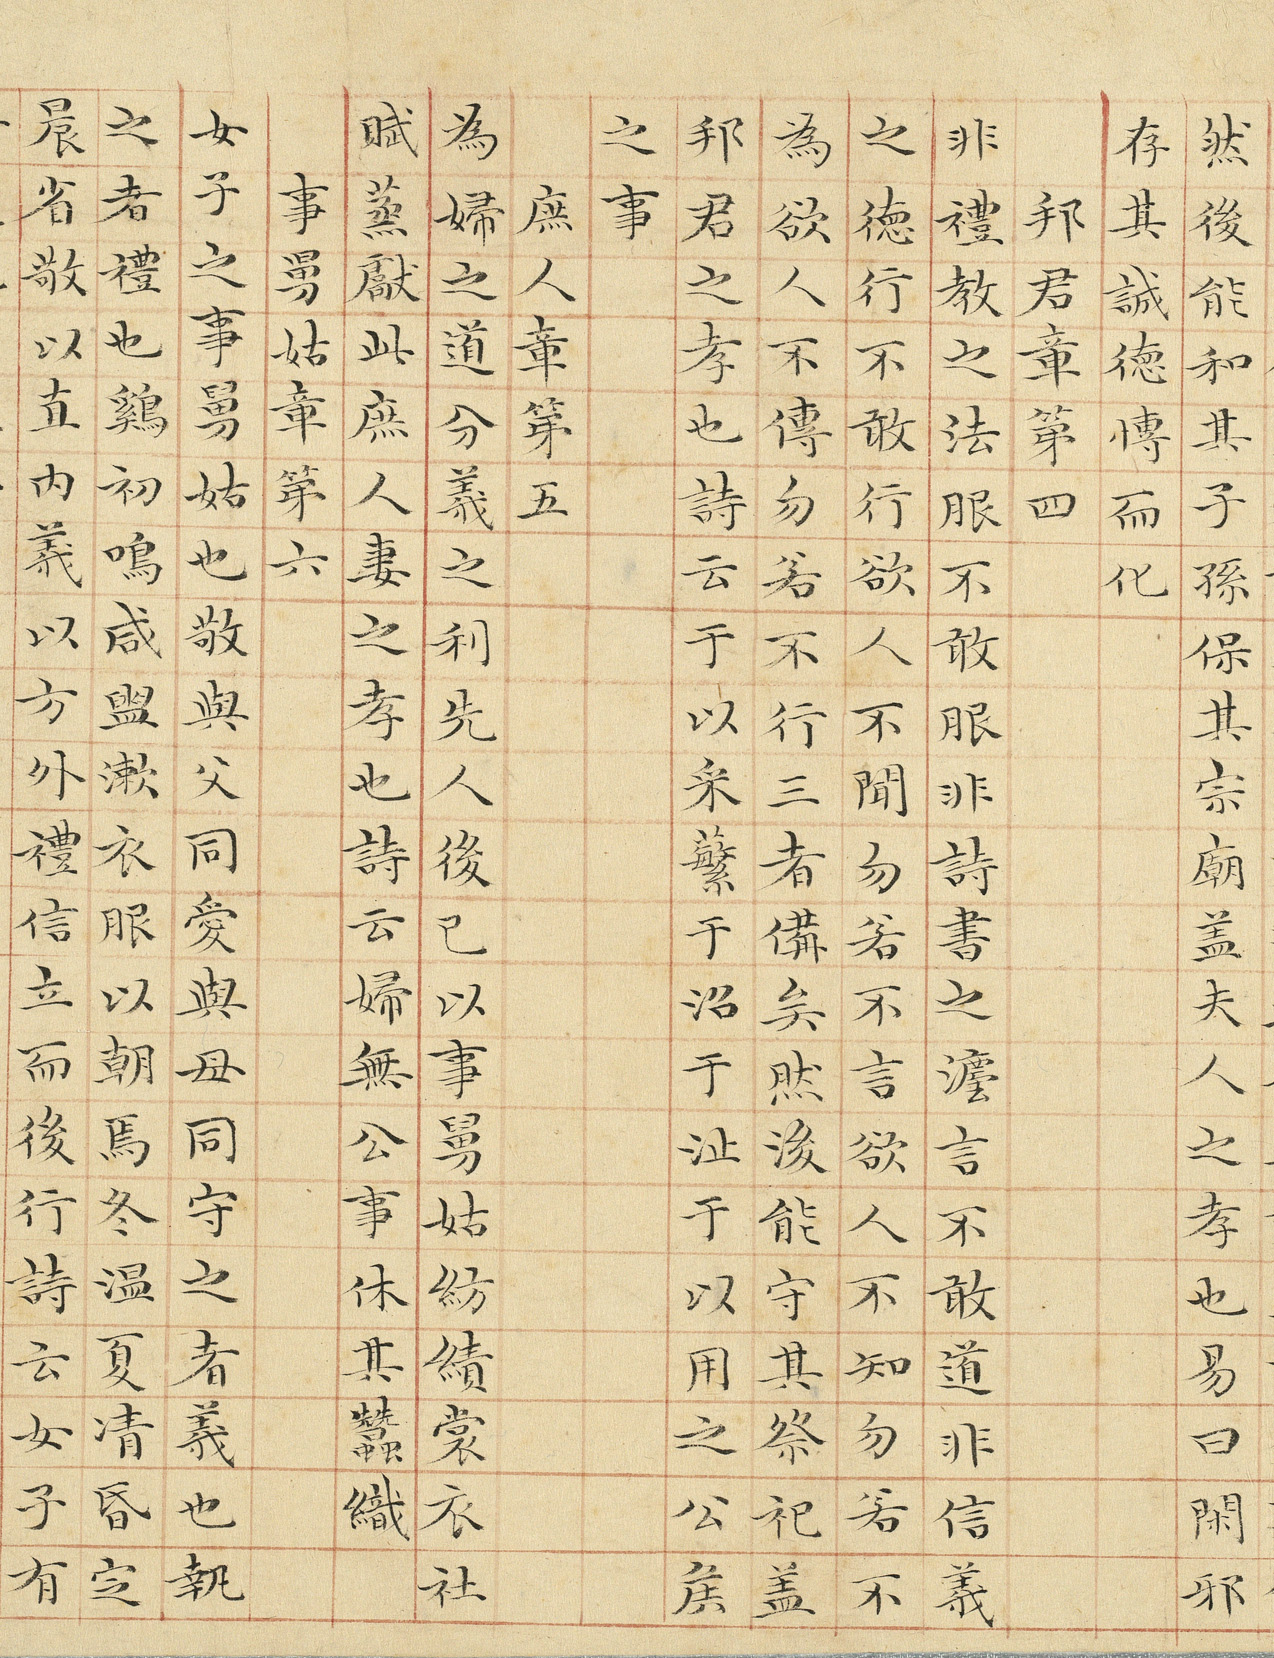 然後能和其子孫保其宗廟盖夫人之孝也易曰閑邪
存其誠德愽而化
邦君章第四
非禮教之法服不敢服非詩書之灋言不敢道非信義
之德行不敢行欲人不聞勿若不言欲人不知勿若不
為欲人不傳勿若不行三者備矣然後能守其祭祀盖
邦君之孝也詩云于以采蘩于沼于沚于以用之公侯
之事
庶人章第五
為婦之道分義之利先人後己以事舅姑紡績裳衣社
賦蒸獻此庶人妻之孝也詩云婦無公事休其蠶織
事舅姑章第六
女子之事舅姑也敬與父同愛與母同守之者義也執
之者禮也鷄初鳴咸盥漱衣服以朝焉冬温夏凊昏定
晨省敬以直內義以方外禮信立而後行詩云女子有